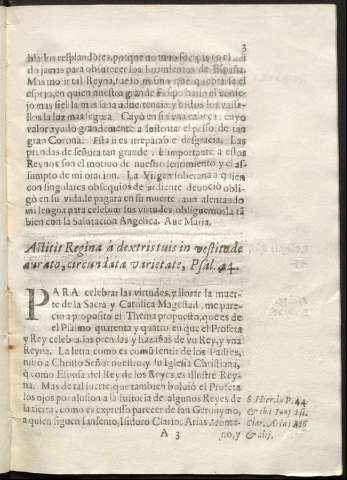 3
do jamas para obscurecer los lucimientos de España.
Mas morir tal Reyna, fue lo mismo que quebrarse el
espejo, en quien nuestro grande Felipo hallò el consejo
mas fiel la mas sana aduertencia, y todos los vasallos
la luz mas segura. Cayò en su vna cabeça, cuyo
valor ayudò grandemente a sustentar el peso de tan
gran Corona. Esta es irreparable desgracia. Las
prendas de señora tan grande, è importante a estos
Reynos son el motiuo de nuestro sentimiento y el assumpto
de mi oracion. La Virgen soberana a quien
con singulares obsequios de ardiente deuociò obligò
en su vida, le pagarà en su muerte, aun alentando
mi lengua para celebrar sus virtudes obliguemosla tãbien
con la Salutacion Angelica. Aue Maria.
Astitit Regina à dextris tuis in vestitu deaurato,
circundata varietate, Psal. 44.
PARA celebrar las virtudes, y llorar la muerte
de la Sacra y Catolica Magestad, me pareciò
a proposito el Thema propuesto, que es de
el Psalmo quarenta y quatro en que el Profeta
y Rey celebra las prendas y hazañas de vn Rey, y vna
Reyna. La letra como es comũ sentir de los Padres,
mirò a Christo Señor nuestro, y su Iglesia Christiana,
q̃ como Esposa del Rey de los Reyes es illustre Reyna.
Mas de tal suerte, que tambien boluiò el Profeta
los ojos por alusion a la historia de algunos Reyes de
la tierra, como es expresso parecer de san Geronymo,
a quien siguen Iansenio, Isidoro Clario, Arias Monta-
A 3 no, y
S. Hier. in P. 44
& ibi Ians. Isi.
Clar. Arias
& alij.